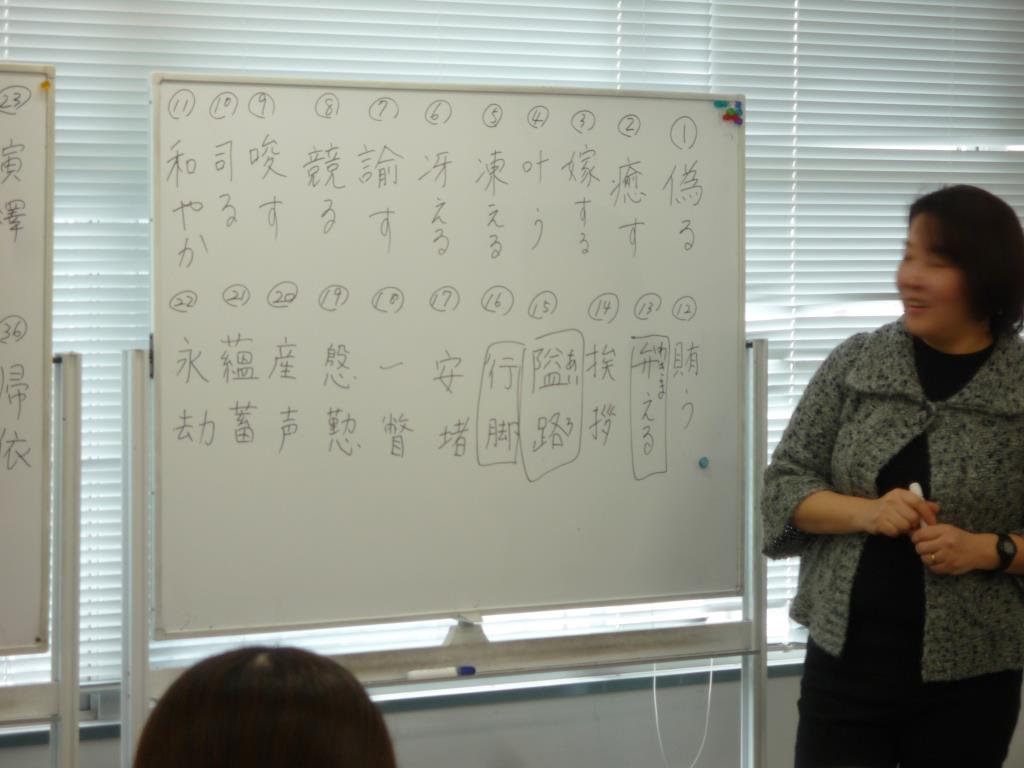 ① 偽る
② 癒す
③ 嫁する
④ 叶う
⑤ 凍える
⑥ 冴える
⑦ 諭す
⑧ 競る
⑨ 唆す
⑩ 司る
⑪ 和やか
⑫ 賄う
⑬ 弁える わきま
⑭ 挨拶
⑮ 隘路 あいろ
⑯ 行脚
⑰ 安堵
⑱ 一瞥
⑲ 慇懃
⑳ 産声
㉑ 蘊蓄
㉒ 永劫
㉓ 寅澤
㊱ 帰依